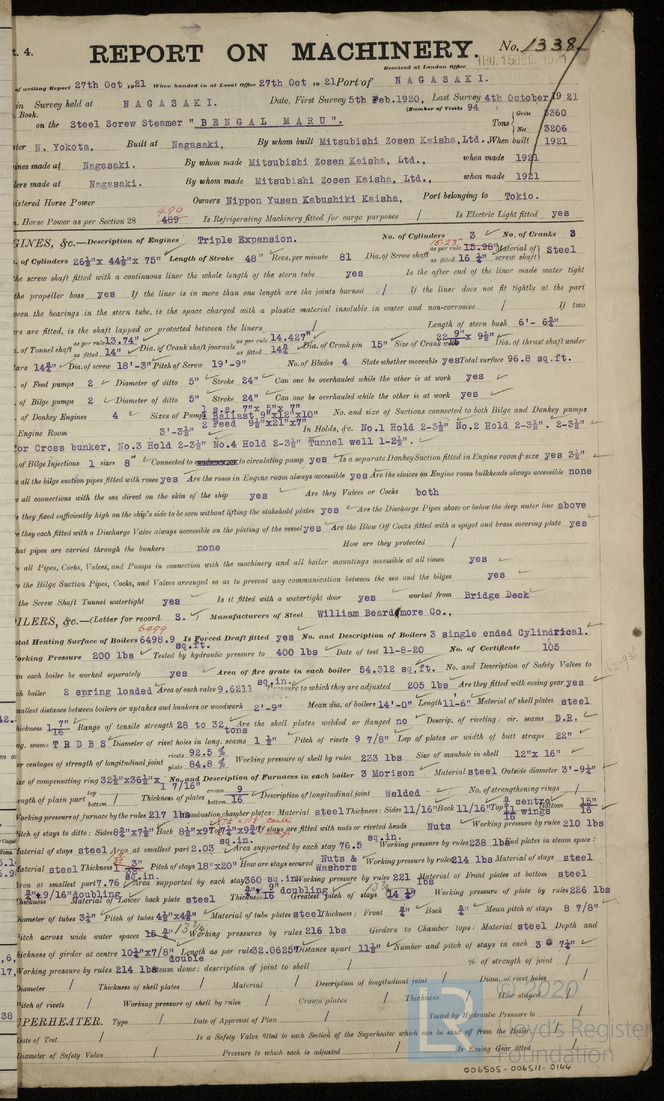 t. 4.
REPORT ON MACHINERY. No. 1338
Received at London Office
of writing Report 27th Oct 1921 When handed in at Local Office 27th Oct 19 21 Port of NAGASAKI.
in Survey held at NAGASAKI. Date, First Survey 5th Feb.1920, Last Survey 4th October 19 21
Book. (Number of Visits 94
on the Steel Screw Steamer "BENGAL MARU". Tons Gross 5360
Net 3206
ster N. Yokota, Built at Nagasaki, By whom built Mitsubishi Zosen Kaisha, Ltd., When built 1921
ines made at Nagasaki. By whom made Mitsubishi Zosen Kaisha, Ltd., when made 1921
lers made at Nagasaki. By whom made Mitsubishi Zosen Kaisha, Ltd., when made 1921
istered Horse Power Owners Nippon Yusen Kabushiki Kaisha, Port belonging to Tokio.
490
Horse Power as per Section 28 489 Is Refrigerating Machinery fitted for cargo purposes / Is Electric Light fitted yes
GINES, &c.—Description of Engines Triple Expansion. No. of Cylinders 3 No. of Cranks 3
of Cylinders 26½"x 44½"x 75" Length of Stroke 48" Revs. per minute 81 Dia. of Screw shaft as per rule 15.98" as fitted 16 ¼" Material of screw shaft Steel
the screw shaft fitted with a continuous liner the whole length of the stern tube yes Is the after end of the liner made water tight
the propeller boss yes If the liner is in more than one length are the joints burned / If the liner does not fit tightly at the part
een the bearings in the stern tube, is the space charged with a plastic material insoluble in water and non-corrosive / If two
rs are fitted, is the shaft lapped or protected between the liners / Length of stern bush 6'- 6¾"
of Tunnel shaft as per rule 13.74" as fitted 14" Dia. of Crank shaft journals as per rule 14.427" as fitted 14¾ Dia. of Crank pin 15" Size of Crank webs 22 9/16" x 9½" Dia. of thrust shaft under
lars 14¾" Dia. of screw 18'-3" Pitch of Screw 19'-9" No. of Blades 4 State whether moveable yes Total surface 96.8 sq.ft.
of Feed pumps 2 Diameter of ditto 5" Stroke 24" Can one be overhauled while the other is at work yes
of Bilge pumps 2 Diameter of ditto 5" Stroke 24" Can one be overhauled while the other is at work yes
of Donkey Engines 4 Sizes of Pumps 1 s.s. 7"x 5"x 7" 1 Ballast 9"x12"x10" 2 Feed 9½"x21"x7" No. and size of Suctions connected to both Bilge and Donkey pumps
Engine Room 3'-3½" In Holds, &c. No.1 Hold 2-3½" No.2 Hold 2-3½". 2-3½"
or Cross bunker, No.3 Hold 2-3½" No.4 Hold 2-3½" Tunnel well 1-2½".
of Bilge Injections 1 sizes 8" Connected to circulating pump yes Is a separate Donkey Suction fitted in Engine room & size yes 3½"
all the bilge suction pipes fitted with roses yes Are the roses in Engine room always accessible yes Are the sluices on Engine room bulkheads always accessible none
all connections with the sea direct on the skin of the ship yes Are they Valves or Cocks both
they fixed sufficiently high on the ship's side to be seen without lifting the stokehold plates yes Are the Discharge Pipes above or below the deep water line above
they each fitted with a Discharge Valve always accessible on the plating of the vessel yes Are the Blow Off Cocks fitted with a spigot and brass covering plate yes
hat pipes are carried through the bunkers none How are they protected /
all Pipes, Cocks, Valves, and Pumps in connection with the machinery and all boiler mountings accessible at all times yes
the Bilge Suction Pipes, Cocks, and Valves arranged so as to prevent any communication between the sea and the bilges yes
the Screw Shaft Tunnel watertight yes Is it fitted with a watertight door yes worked from Bridge Deck
OILERS, &c.—(Letter for record S. ) Manufacturers of Steel William Beardmore Co.,
6499
otal Heating Surface of Boilers 6498.9 sq.ft. Is Forced Draft fitted yes No. and Description of Boilers 3 single ended Cylindrical.
orking Pressure 200 lbs Tested by hydraulic pressure to 400 lbs Date of test 11-8-20 No. of Certificate 105
each boiler be worked separately yes Area of fire grate in each boiler 54.312 sq.ft. No. and Description of Safety Valves to
ch boiler 2 spring loaded Area of each valve 9.6211 sq.in. Pressure to which they are adjusted 205 lbs Are they fitted with easing gear yes
mallest distance between boilers or uptakes and bunkers or woodwork 2'-9" Mean dia. of boilers 14'-0" Length 11-6" Material of shell plates steel
hickness 1 7/16" Range of tensile strength 28 to 32 tons Are the shell plates welded or flanged no Descrip. of riveting: cir. seams D.R.
ng. seams T R D B S Diameter of rivet holes in long. seams 1 ½" Pitch of rivets 9 7/8" Lap of plates or width of butt straps 22"
er centages of strength of longitudinal joint rivets 92.5 % plate 84.8 % Working pressure of shell by rules 233 lbs Size of manhole in shell 12"x 16"
ize of compensating ring 32½"x36½"x1 7/16" No. and Description of Furnaces in each boiler 3 Morison Material steel Outside diameter 3'-9½"
ength of plain part top / bottom / Thickness of plates crown bottom 9/16 Description of longitudinal joint welded No. of strengthening rings /
Working pressure of furnace by the rules 217 lbs Combustion chamber plates: Material steel Thickness: Sides 11/16" Back 11/16" Top centre 11/16 wings Bottom 15/16"
Pitch of stays to ditto: Sides 8¾"x7½" Back 8½"x9 Top If stays are fitted with nuts or riveted heads Nuts Working pressure by rules 210 lbs
Material of stays steel Area at smallest part 2.03 sq.in. Area supported by each stay 76.5 sq.in. Working pressure by rules 238 lbs End plates in steam space:
Material steel Thickness Pitch of stays 18"x20" How are stays secured Nuts & washers Working pressure by rules 214 lbs Material of stays steel
Area at smallest part 7.76 sq.in. Area supported by each stay 360 sq.in. Working pressure by rules 221 lbs Material of Front plates at bottom steel
Thickness ¾"+9/16" doubling Material of Lower back plate steel Thickness doubling Greatest pitch of stays 14 ½" Working pressure of plate by rules 226 lbs
Diameter of tubes 3½" Pitch of tubes 4½"x4½" Material of tube plates steel Thickness: Front ¾" Back ¾" Mean pitch of stays 8 7/8"
Pitch across wide water spaces Working pressures by rules 216 lbs Girders to Chamber tops: Material steel Depth and
hickness of girder at centre 10½"x7/8" double Length as per rule 32.0625" Distance apart 11½" Number and pitch of stays in each 3 @ 7½"
Working pressure by rules 214 lbs Steam dome: description of joint to shell / % of strength of joint /
Diameter / Thickness of shell plates / Material / Description of longitudinal joint / Diam. of rivet holes /
Pitch of rivets / Working pressure of shell by rules / Crown plates / Thickness / How stayed /
UPERHEATER. Type / Date of Approval of Plan / Tested by Hydraulic Pressure to /
Date of Test / Is a Safety Valve fitted to each Section of the Superheater which can be shut off from the Boiler /
Diameter of Safety Valve / Pressure to which each is adjusted / Is Easing Gear fitted /
© 2020
Lloyd's Register
Foundation
006505-006511-0144